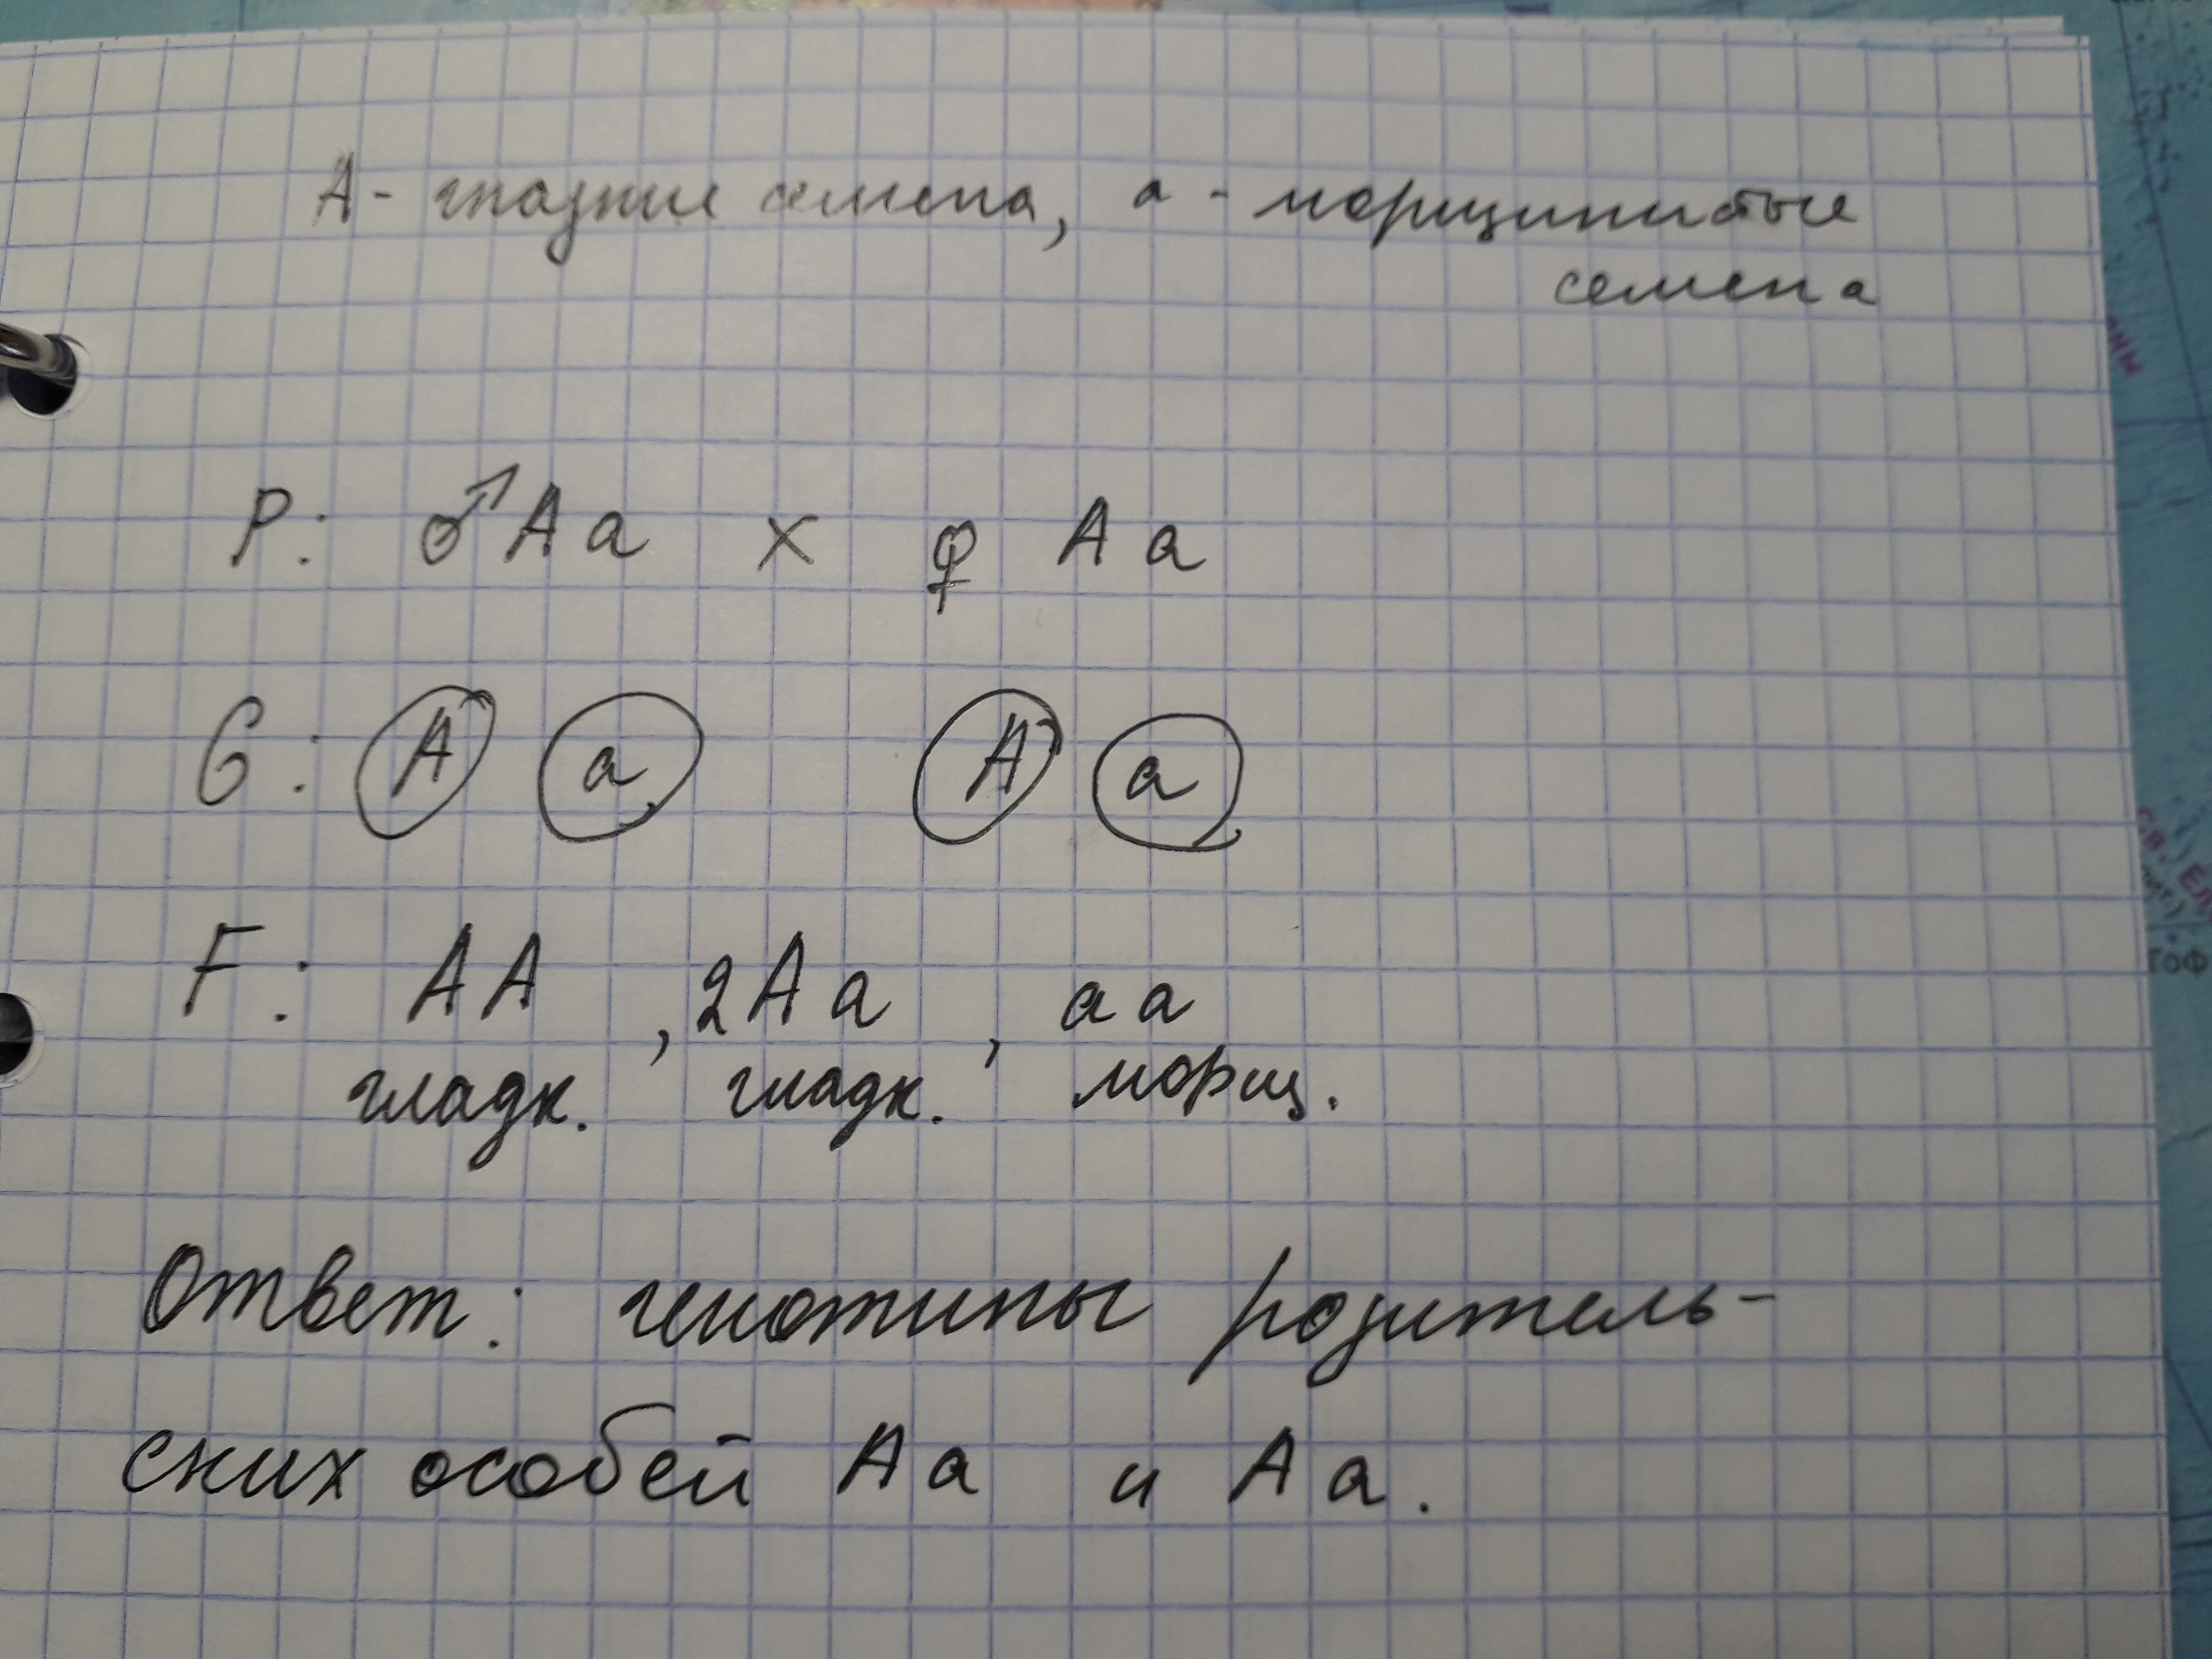 А - гладкие семена, а - морщинистые
семена
P: ♂ Aa x ♀ Aa
G: A a A a
F: AA , 2Aa , aa
гладк. гладк. морщ.
Ответ: генотипы родитель-
ских особей Aa и Aa.